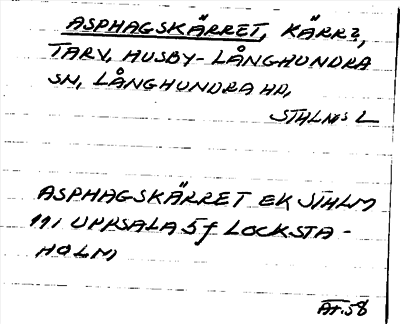 ASPHAGSKÄRRET, KÄRR?,
TARV, HUSBY-LÅNGHUNDRA
SN, LÅNGHUNDRA HD,
STHLMS L
ASPHAGSKÄRRET EK STHLM
11i UPPSALA 5f LOCKSTA-
HOLM
AT.58